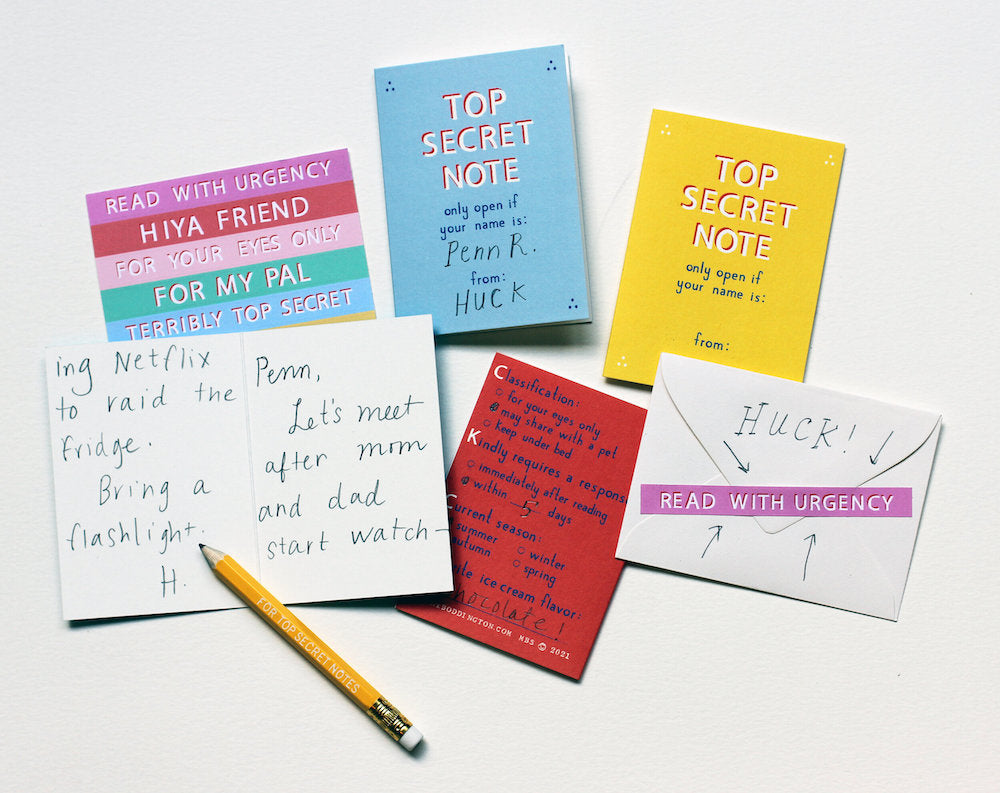 READ WITH URGENCY
HIYA FRIEND
FOR YOUR EYES ONLY
FOR MY PAL
TERRIBLY TOP SECRET
TOP
SECRET
NOTE
only open if
your name is:
Penn R.
from:
HUCK
TOP
SECRET
NOTE
only open if
your name is:
from:
ing Netflix
to raid the
fridge.
Bring a
flashlight.
H.
Penn,
Let's meet
after mom
and dad
start watch-
Classification:
for your eyes only
may share with a pet
keep under bed
Kindly requires a respons
immediately after reading
within 5 days
Current season:
summer winter
autumn spring
ice cream flavor:
hocolate!
BODDINGTON.COM MBS © 2021
HUCK!
READ WITH URGENCY
FOR TOP SECRET NOTES